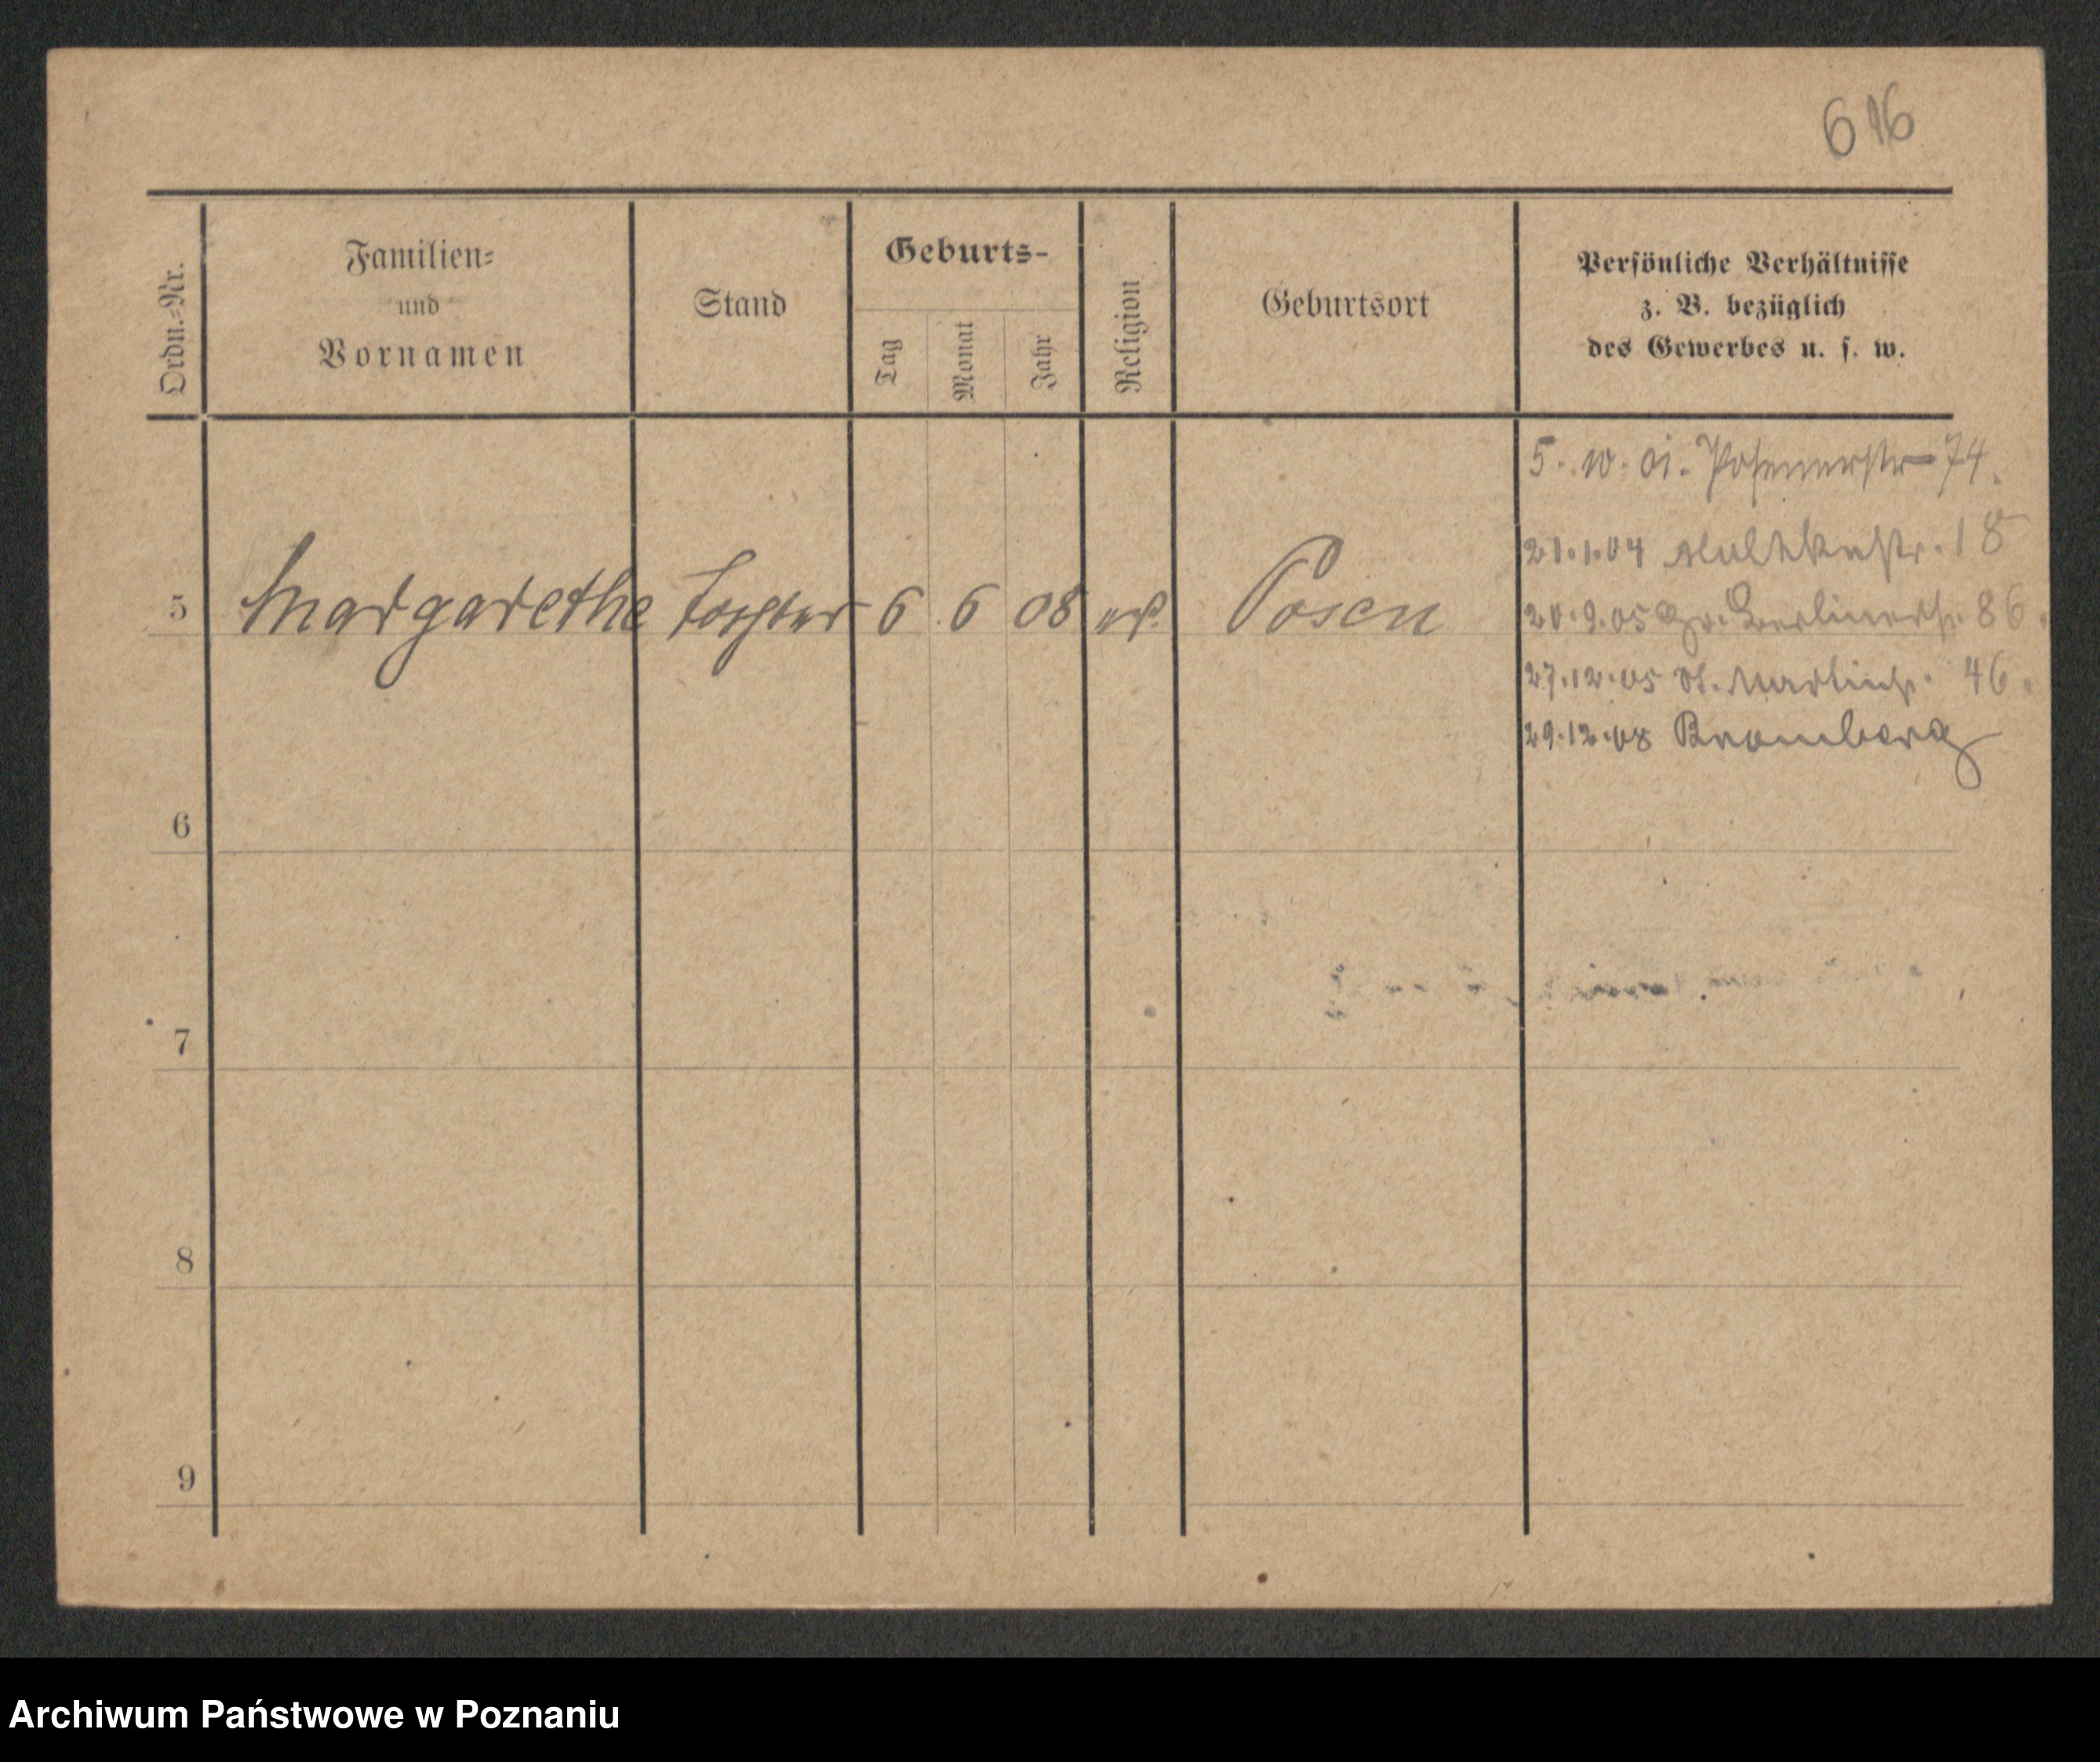 616
Ordn.-Nr.
Familien-
und
Vornamen
Stand
Geburts-
Tag
Monat
Jahr
Religion
Geburtsort
Persönliche Verhältnisse
z. B. bezüglich
des Gewerbes u. s. w.
5. 10. 01. Posenerstr 74.
21.1.04 Moltkestr. 18
5 Margarethe Tochter 6 6 08 ev. Posen
20.9.05 Gr. Berlinerstr. 86.
27.12.05 St. Martinstr. 46.
29.12.08 Bromberg
6
7
8
9
Archiwum Państwowe w Poznaniu